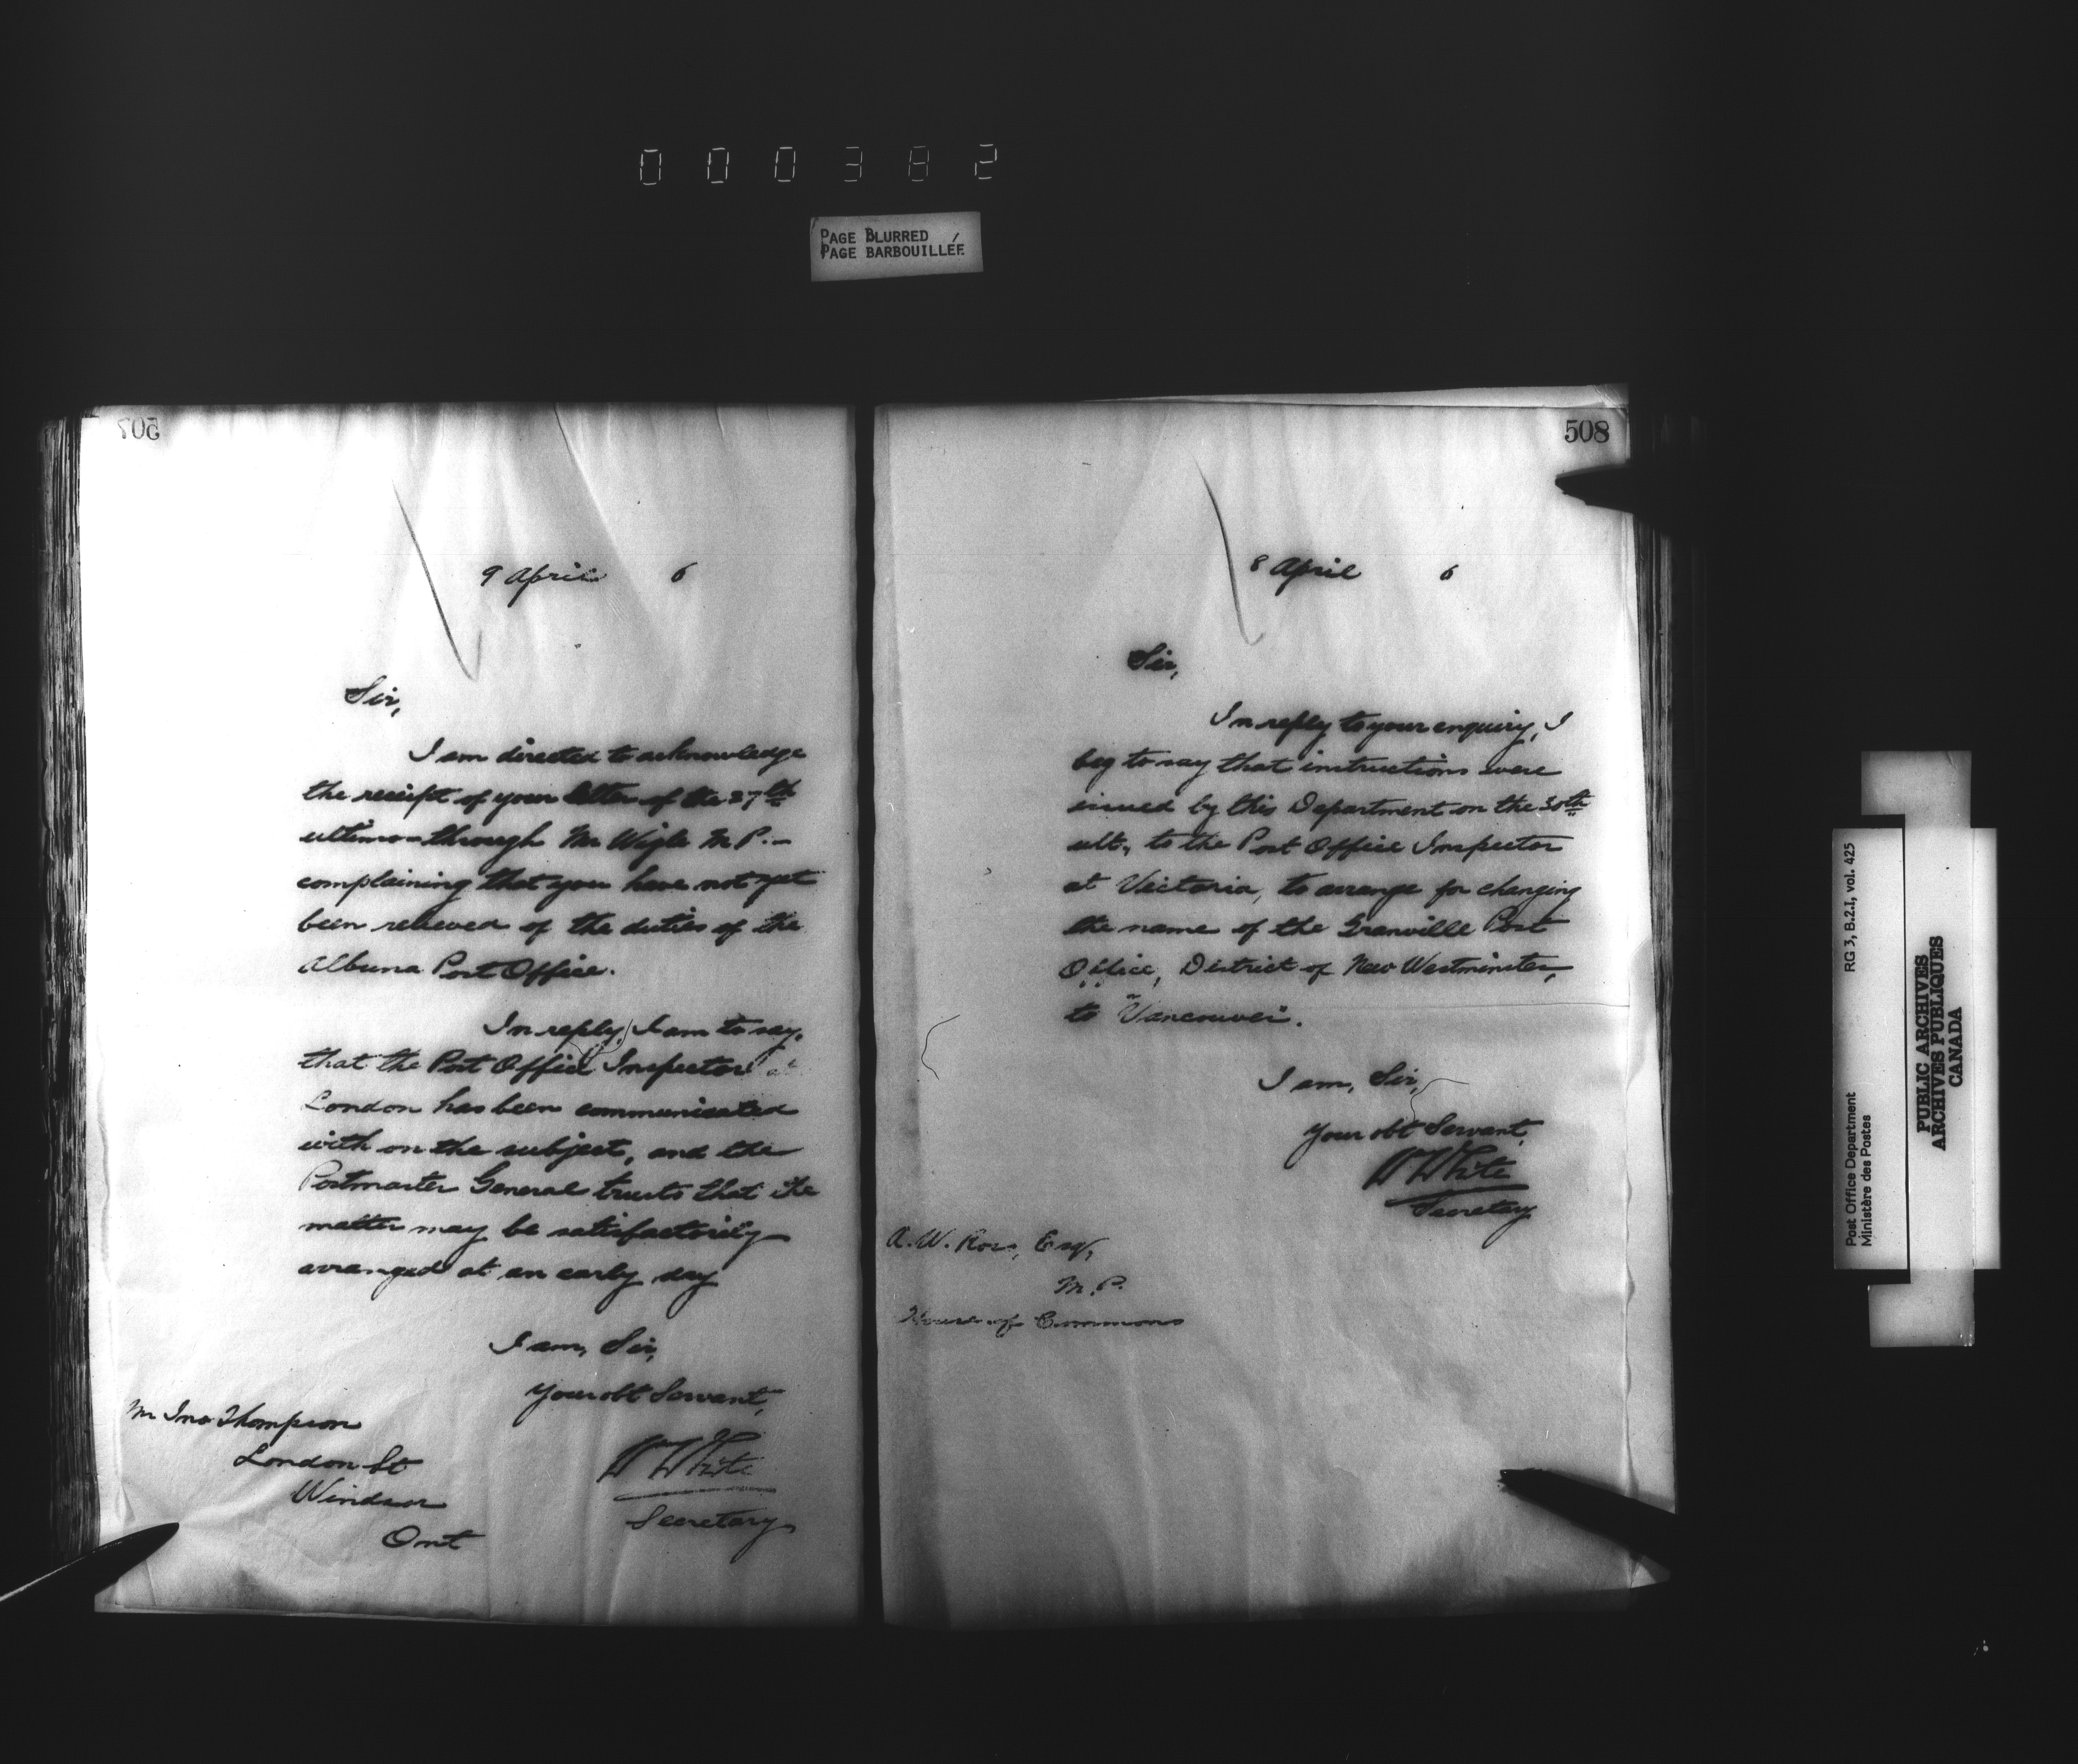 000382
PAGE BLURRED
PAGE BARBOUILLÉE
507
9 April 6
Sir,
I am directed to acknowledge
the receipt of your letter of the 27th
ultimo – through Mr Wigle M.P. –
complaining that you have not yet
been relieved of the duties of the
Albuna Post Office.
In reply, I am to say,
that the Post Office Inspector at
London has been communicated
with on the subject, and the
Postmaster General trusts that the
matter may be satisfactorily
arranged at an early day
I am, Sir,
Your obt Servant,
W White
Secretary
Mr Jno Thompson
London St
Windsor
Ont
508
8 April 6
Sir,
In reply to your enquiry, I
beg to say that instructions were
issued by this Department on the 30th
ult., to the Post Office Inspector
at Victoria, to arrange for changing
the name of the Granville Post
Office, District of New Westminster,
to "Vancouver".
I am, Sir,
Your obt Servant,
W White
Secretary
A. W. Ross, Esq,
M.P.
House of Commons
Post Office Department RG 3, B.2.I, vol. 425
Ministère des Postes
PUBLIC ARCHIVES
ARCHIVES PUBLIQUES
CANADA